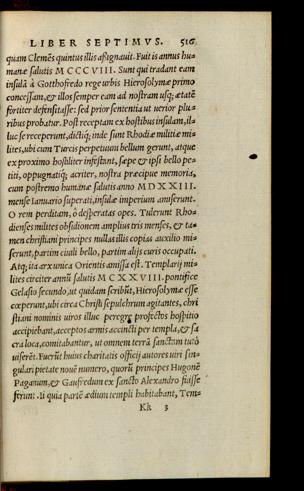 LIBER SEPTIMVS. 516
quam Clemēs quintus illis aſsignauit. Fuit is annus hu-
manæ ſalutis M CCCVIII. Sunt qui tradant eam
inſulā à Gotthofredo rege urbis Hieroſolymæ primo
conceſſam, & illos ſemper eam ad noſtram uſq; ætatē
fortiter defenſitaſſe: ſed prior ſententia ut uerior plu-
ribus probatur. Poſt receptam ex hoſtibus inſulam, il-
luc ſe receperunt, dictiq; inde ſunt Rhodiæ militiæ mi-
lites, ubi cum Turcis perpetuum bellum gerunt, atque
ex proximo hoſtiliter infeſtant, ſæpe & ipſi bello pe-
titi, oppugnatiq; acriter, noſtra præcipue memoria,
cum poſtremo humanæ ſalutis anno MDXXIII.
menſe Ianuario ſuperati, inſulæ imperium amiſerunt.
O rem perditam, ô deſperatas opes. Tulerunt Rho-
dienſes milites obſidionem amplius tris menſes, & ta-
men chriſtiani principes nullas illis copias auxilio mi-
ſerunt, partim ciuili bello, partim alijs curis occupati.
Atq; ita arx unica Orientis amiſſa eſt. Templarij mi-
lites circiter annū ſalutis M CXXVIII. pontifice
Gelaſio ſecundo, ut quidam ſcribūt, Hieroſolymæ eſſe
cœperunt, ubi circa Chriſti ſepulchrum agitantes, chri
ſtiani nominis uiros illuc peregrè profectos hoſpitio
accipiebant, acceptos armis accincti per templa, & ſa
cra loca, comitabantur, ut omnem terrā ſanctam tutò
uiſerēt. Fuerūt huius charitatis officij autores uiri ſin-
gulari pietate nouē numero, quorū principes Hugonē
Paganum, & Gaufredum ex ſancto Alexandro fuiſſe
ferunt. Ii quia partē ædium templi habitabant, Tem-
Kk 3